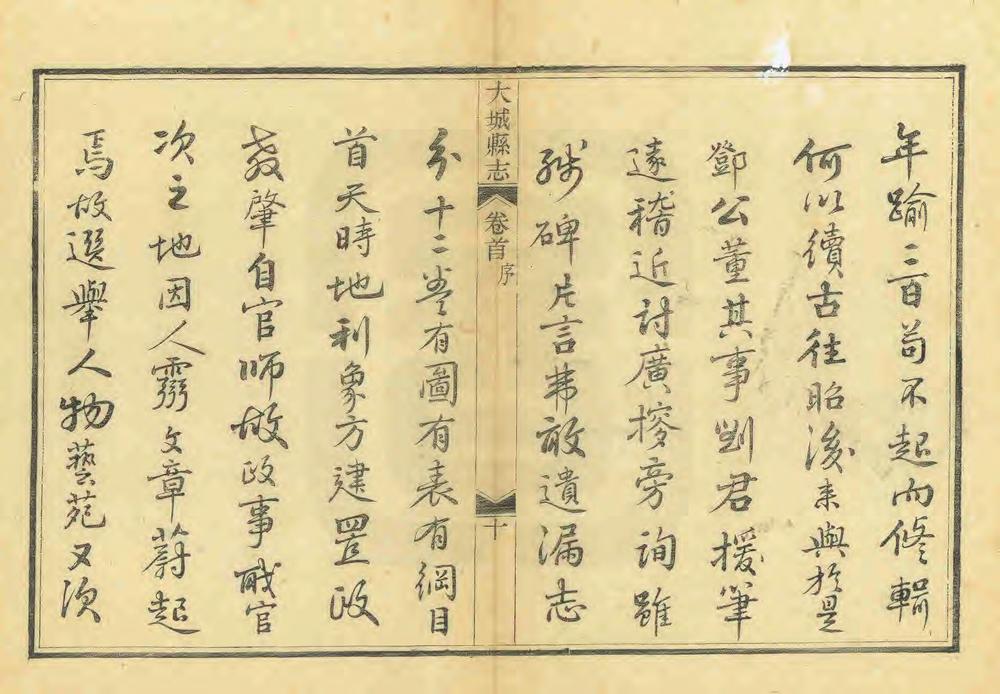 年踰三百苟不起而修輯
何以續古往昭後来與於是
鄧公董其事劉君援筆
遠稽近討廣搜旁詢雖
殘碑片言弗敢遺漏志
大城縣志 卷首 序 十
分十二卷有圖有表有綱目
首天時地利象方建置政
教肇自官師故政事職官
次之地因人靈文章蔚起
焉故選舉人物藝苑又次